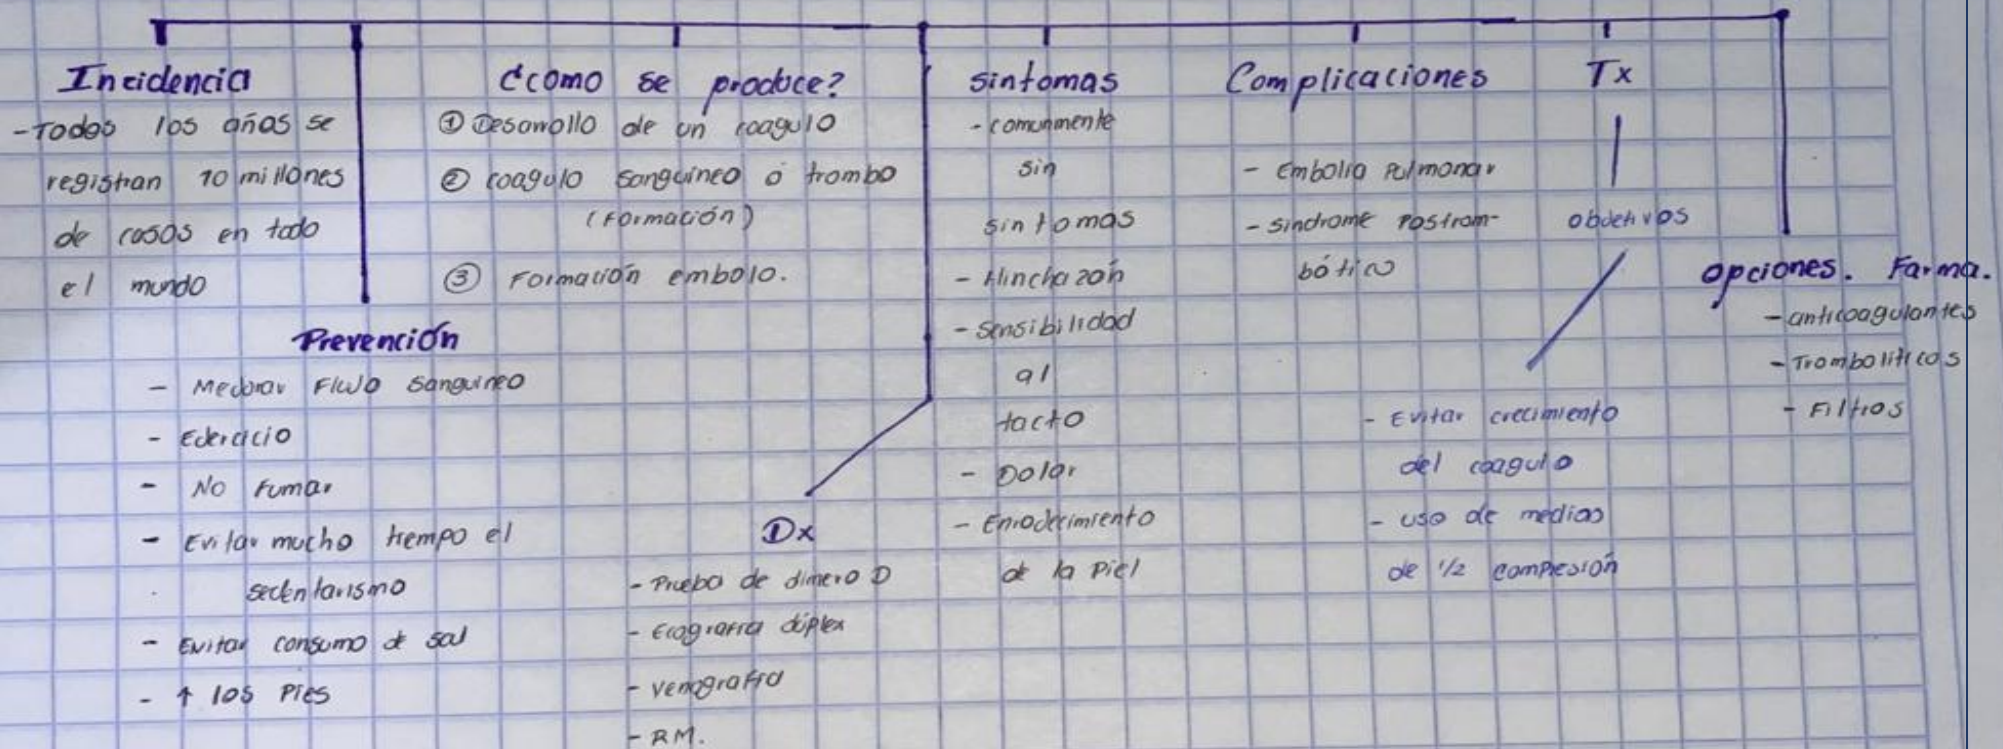 Incidencia
- Todos los años se
registran 10 millones
de casos en todo
el mundo
Prevención
- Mejorar Flujo Sanguineo
- Ejercicio
- No Fumar
- Evitar mucho tiempo el
sedentarismo
- Evitar consumo de sal
- ↑ los Pies
¿como se produce?
① Desarrollo de un coagulo
② coagulo sanguineo ó trombo
(Formación)
③ Formación embolo.
Dx
- Prueba de dimero D
- Ecografia dúplex
- venografia
- RM.
sintomas
- comunmente
sin
sintomas
- Hinchazón
- sensibilidad
al
tacto
- Dolor
- Enrojecimiento
de la Piel
Complicaciones
- Embolia Pulmonar
- sindrome Postrom-
bótico
Tx
objetivos
- Evitar crecimiento
del coagulo
- uso de medias
de 1/2 compresión
opciones. Farma.
- anticoagulantes
- Tromboliticos
- Filtros